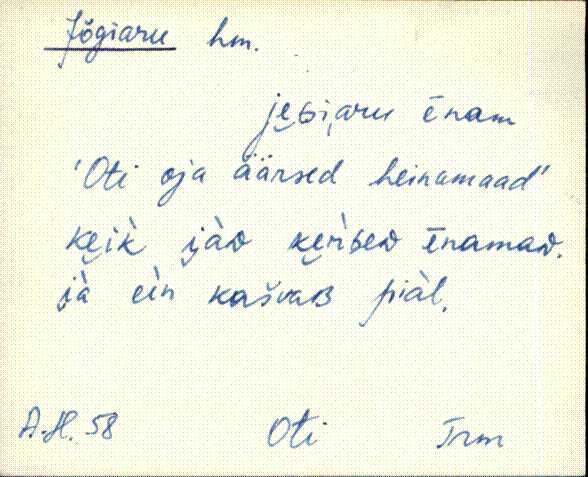 Jõgiaru hm.
jẹɢi̭aru ēnam
'Oti oja äärsed heinamaad'
kẹik̀ i̭àᴅ kẹr̀ʙeᴅ ēnamaᴅ.
i̭à eìn kašvaʙ piàl.
A.H. 58 Oti Trm